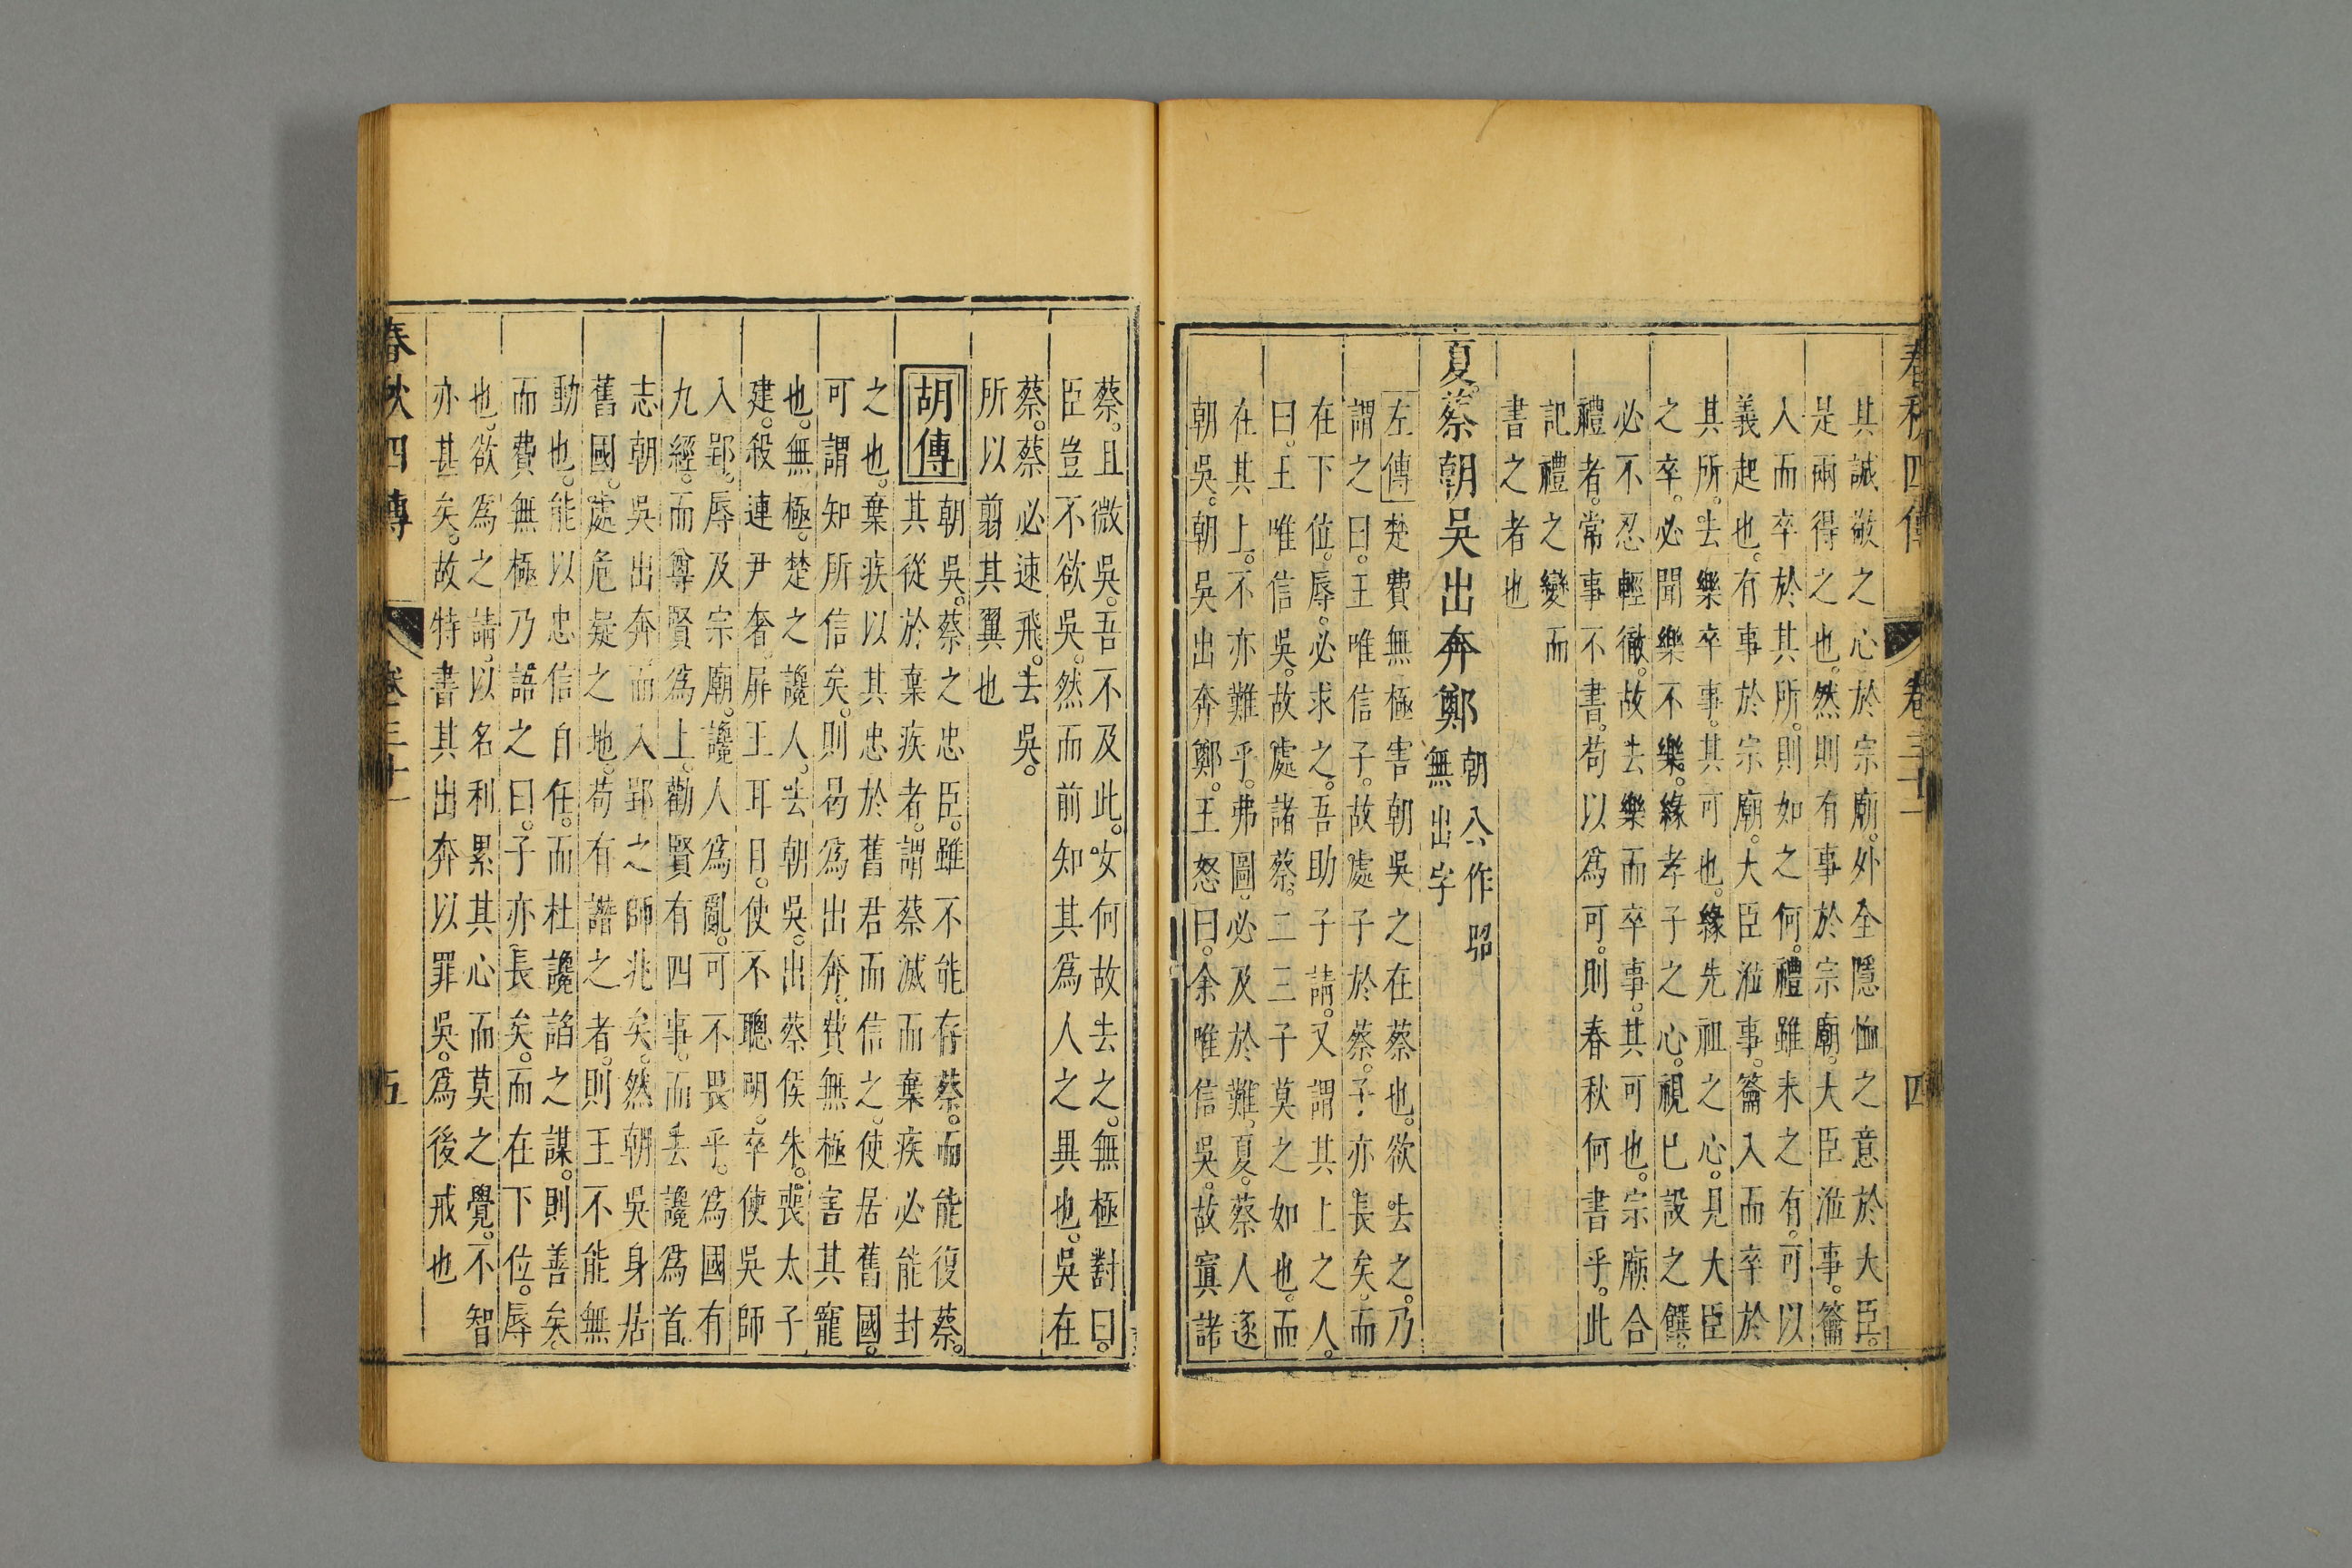 春秋四傳 卷三十一 四
其誠敬之心於宗廟。外全隱恤之意於大臣。
是兩得之也。然則有事於宗廟。大臣涖事。籥
入而卒於其所。則如之何。禮雖未之有。可以
義起也。有事於宗廟。大臣涖事。籥入而卒於
其所。去樂卒事。其可也。緣先祖之心。見大臣
之卒。必聞樂不樂。緣孝子之心。視已設之饌。
必不忍輕徹。故去樂而卒事。其可也。宗廟合
禮者。常事不書。苟以爲可。則春秋何書乎。此
記禮之變而
書之者也
夏。蔡朝吳出奔鄭
朝公作昭
無出字
左傳 楚費無極害朝吳之在蔡也。欲去之。乃
謂之曰。王唯信子。故處子於蔡。子亦長矣。而
在下位。辱。必求之。吾助子請。又謂其上之人。
曰。王唯信吳。故處諸蔡。二三子莫之如也。而
在其上。不亦難乎。弗圖。必及於難。夏。蔡人逐
朝吳。朝吳出奔鄭。王怒曰。余唯信吳。故寘諸
蔡。且微吳。吾不及此。女何故去之。無極對曰。
臣豈不欲吳。然而前知其爲人之異也。吳在
蔡。蔡必速飛。去吳。
所以翦其翼也
胡傳
朝吳。蔡之忠臣。雖不能存蔡。而能復蔡。
其從於棄疾者。謂蔡滅而棄疾必能封
之也。棄疾以其忠於舊君而信之。使居舊國。
可謂知所信矣。則曷爲出奔。費無極害其寵
也。無極。楚之讒人。去朝吳。出蔡侯朱。喪太子
建。殺連尹奢。屏王耳目。使不聰明。卒使吳師
入郢。辱及宗廟。讒人爲亂。可不畏乎。爲國有
九經。而尊賢爲上。勸賢有四事。而去讒爲首。
志朝吳出奔。而入郢之師兆矣。然朝吳身居
舊國。處危疑之地。苟有譖之者。則王不能無
動也。能以忠信自任。而杜讒諂之謀。則善矣。
而費無極乃語之曰。子亦長矣。而在下位。辱
也。欲爲之請。以名利累其心而莫之覺。不智
亦甚矣。故特書其出奔以罪吳。爲後戒也
春秋四傳 卷三十一 五